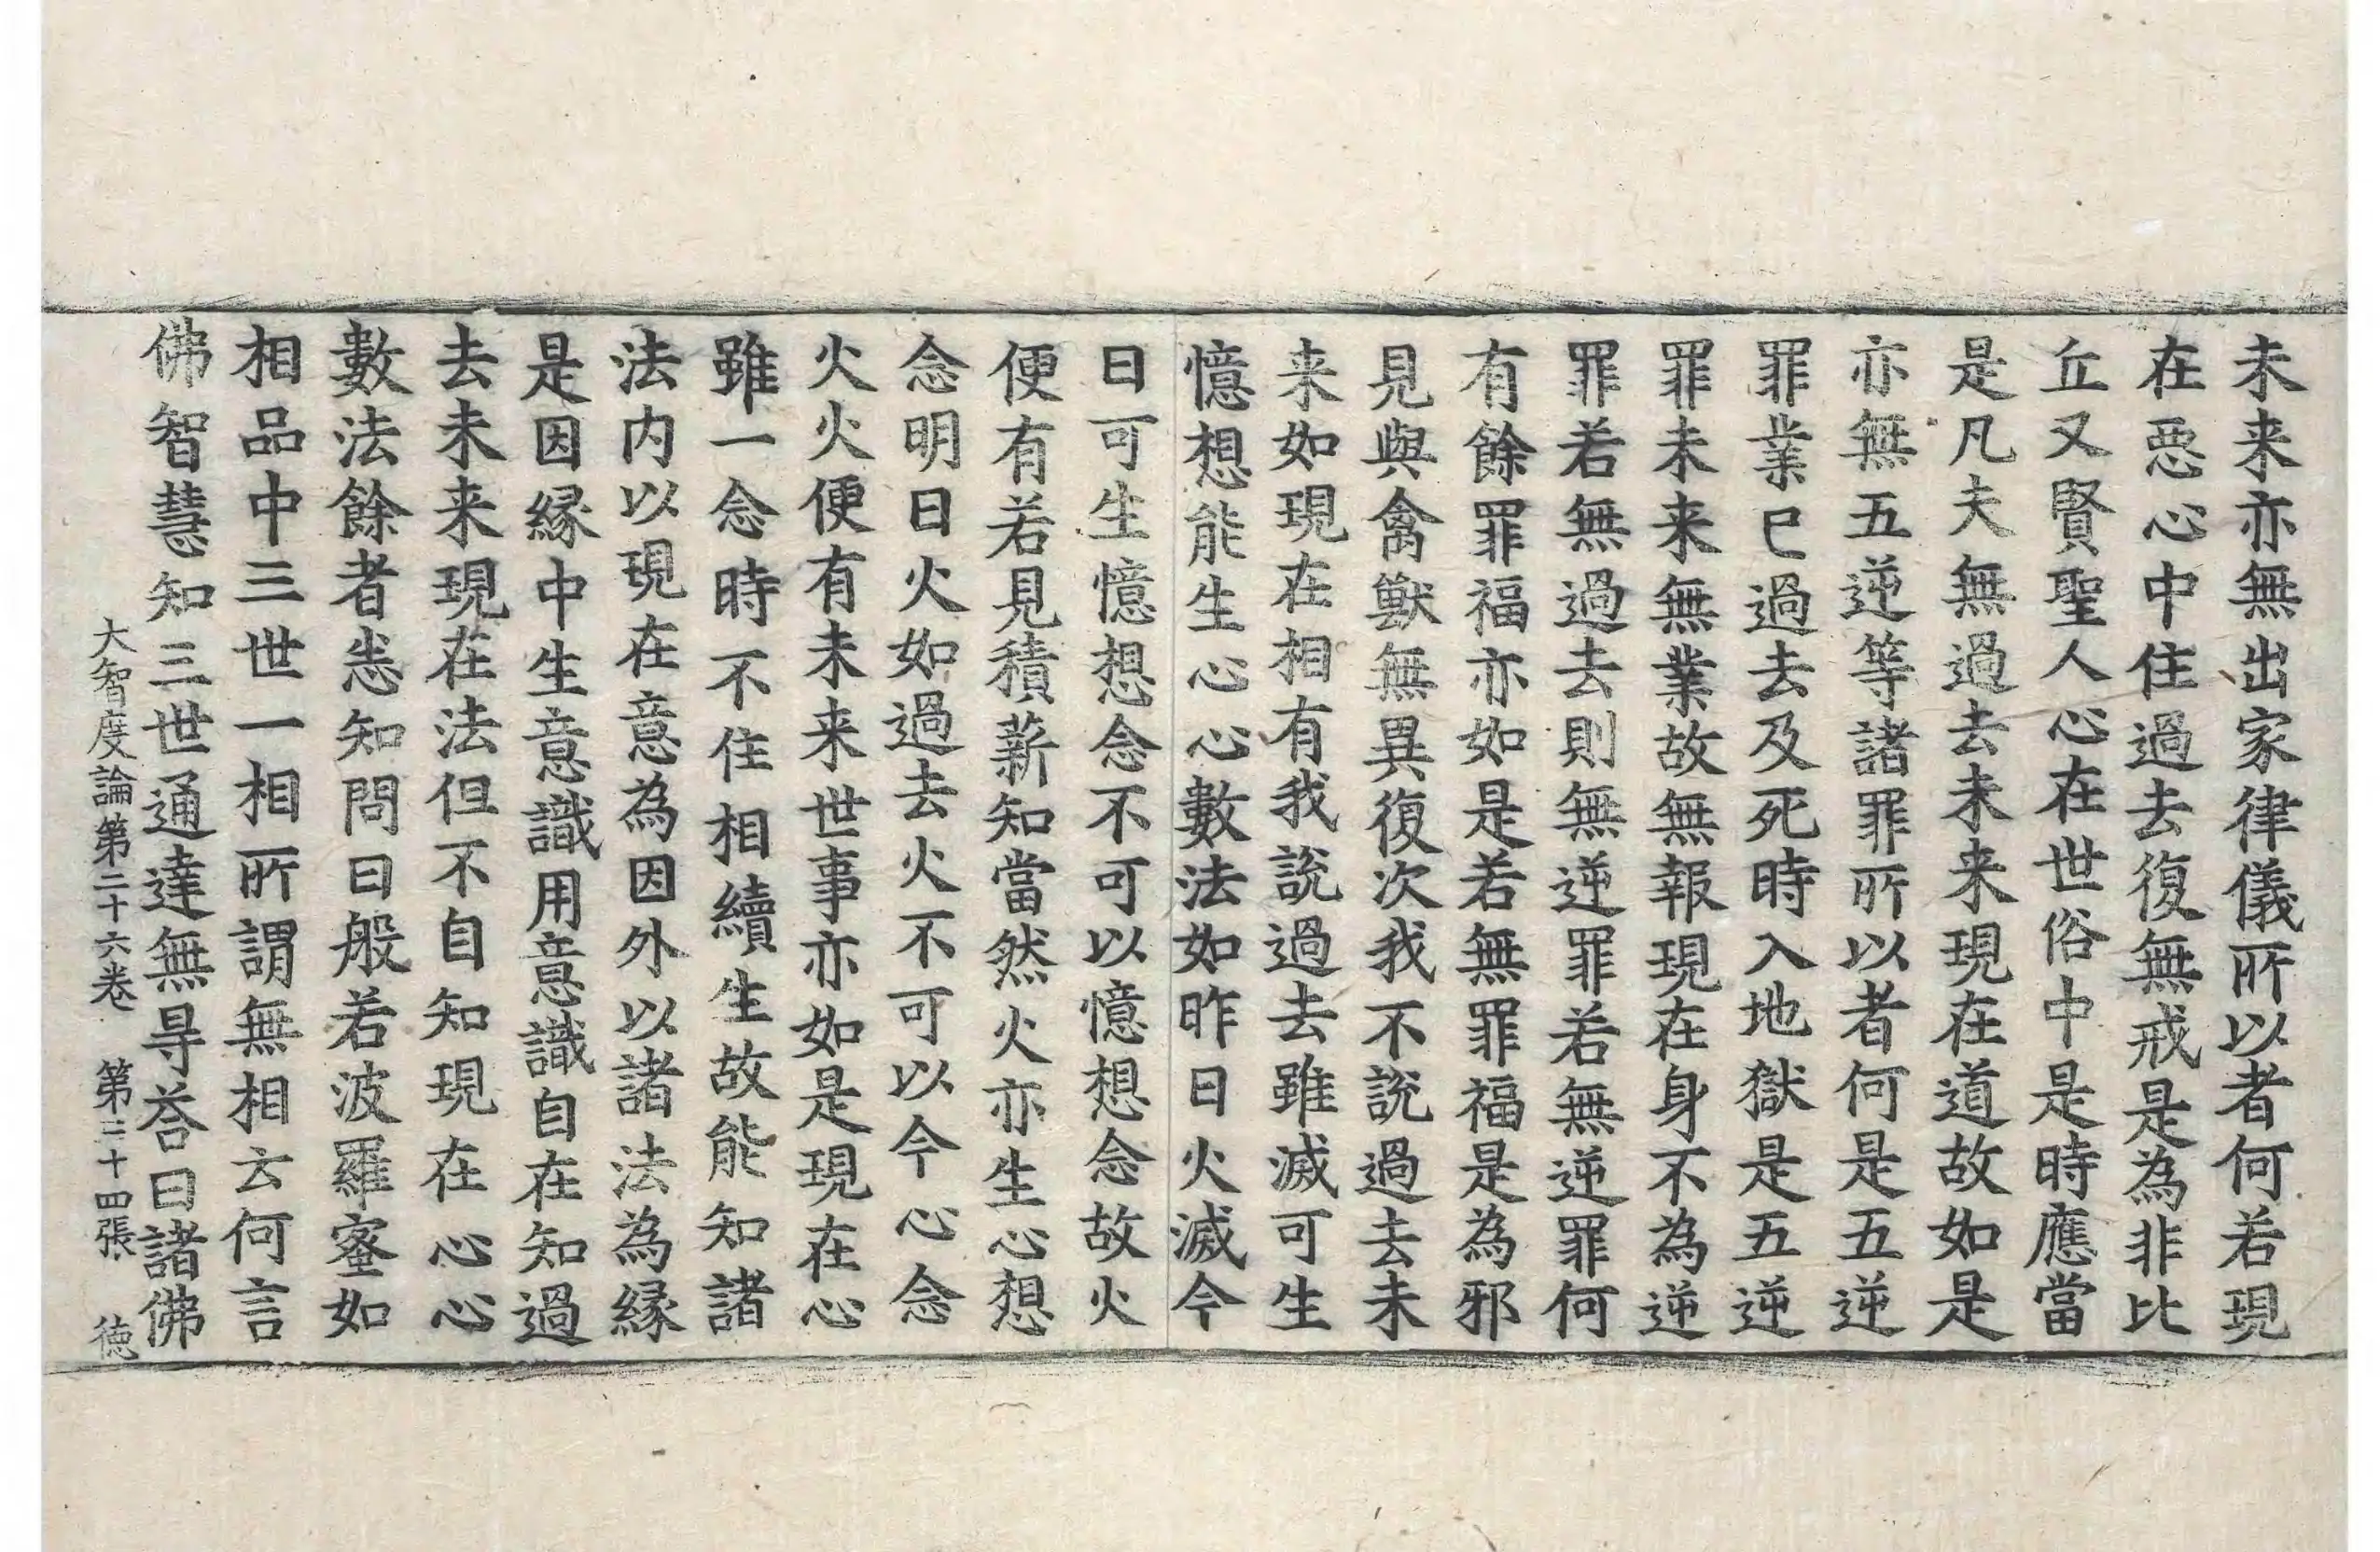 未来亦無出家律儀所以者何若現
在惡心中住過去復無戒是為非比
丘又賢聖人心在世俗中是時應當
是凡夫無過去未来現在道故如是
亦無五逆等諸罪所以者何是五逆
罪業已過去及死時入地獄是五逆
罪未来無業故無報現在身不為逆
罪若無過去則無逆罪若無逆罪何
有餘罪福亦如是若無罪福是為邪
見與禽獸無異復次我不說過去未
来如現在相有我說過去雖滅可生
憶想能生心心數法如昨日火滅今
日可生憶想念不可以憶想念故火
便有若見積薪知當然火亦生心想
念明日火如過去火不可以今心念
火火便有未来世事亦如是現在心
雖一念時不住相續生故能知諸
法内以現在意為因外以諸法為緣
是因緣中生意識用意識自在知過
去未来現在法但不自知現在心心
數法餘者悉知問曰般若波羅蜜如
相品中三世一相所謂無相云何言
佛智慧知三世通達無㝵荅曰諸佛
大智度論第二十六卷 第三十四張 德